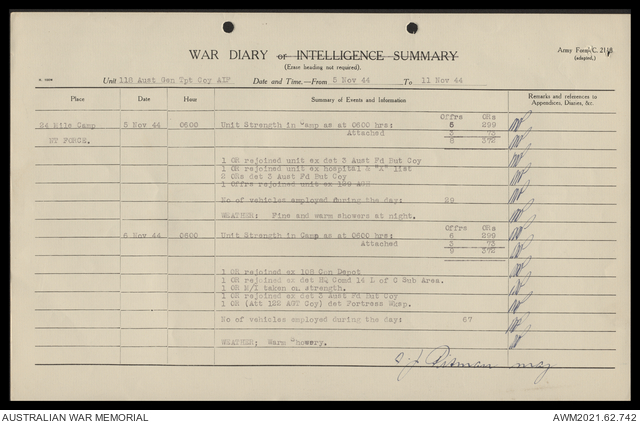 WAR DIARY or INTELLIGENCE SUMMARY
(Erase heading not required).
Army Form C. 2118.
(adapted.)
Unit 118 Aust Gen Tpt Coy AIF Date and Time.—From 5 Nov 44 To 11 Nov 44
Place Date Hour Summary of Events and Information Remarks and references to Appendices, Diaries, &c.
Offrs ORs
24 Mile Camp 5 Nov 44 0600 Unit Strength in Camp as at 0600 hrs: 5 299
NT FORCE. Attached 3 73
8 372
1 OR rejoined unit ex det 3 Aust Fd But Coy
1 OR rejoined unit ex hospital & "X" list
2 ORs det 3 Aust Fd But Coy
1 Offrs rejoined unit ex
No of vehicles employed during the day: 29
WEATHER: Fine and warm showers at night.
Offrs ORs
6 Nov 44 0600 Unit Strength in Camp as at 0600 hrs: 6 299
Attached 3 73
9 372
1 OR rejoined ex 128 Con Depot
1 OR rejoined ex det HQ Comd 14 L of C Sub Area.
1 OR M/T taken on strength.
1 OR rejoined ex det 3 Aust Fd But Coy
1 OR (Att 122 AGT Coy) det Fortress Wksp.
No of vehicles employed during the day: 67
WEATHER: Warm Showery.
Pitman maj
AUSTRALIAN WAR MEMORIAL AWM2021.62.742